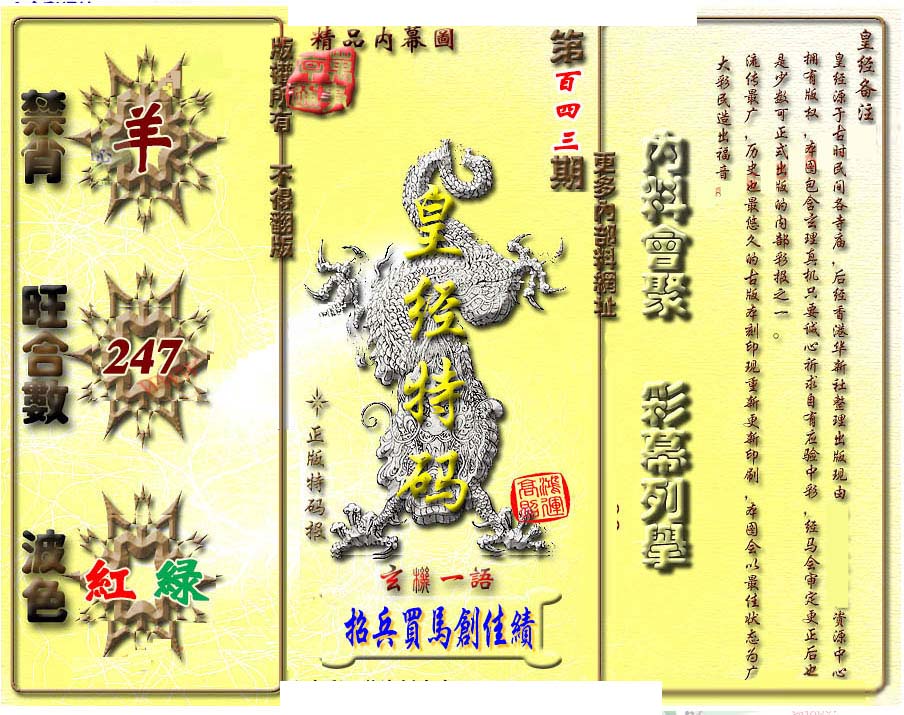 禁肖
羊
旺合數
247
波色
紅 綠
版權所有 不得翻版
精品内幕圖
第百四三期
皇经特码
正版特码报
鴻運高照
玄機一語
招兵買馬創佳績
更多内部料網址
内料會聚
彩幕列舉
皇经备注
皇经源于古时民间各寺庙,后经香港华新社整理出版现由 资源中心
拥有版权,本图包含玄理真机只要诚心祈求自有应验中彩,经马会审定更正后也
是少数可正式出版的内部彩报之一。
流传最广,历史也最悠久的古版本刻印现重新更新印刷,本图会以最佳状态为广
大彩民造出福音